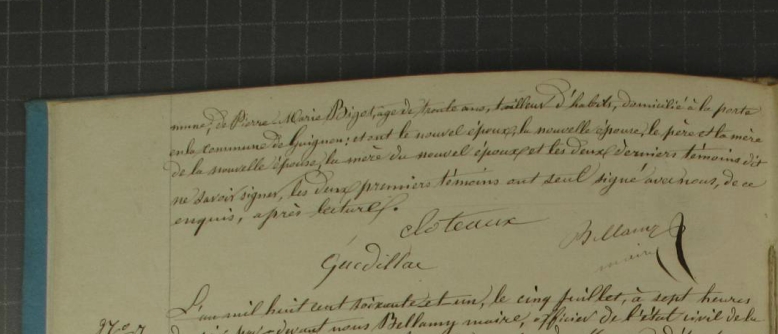 mune; de Pierre Marie Bizot, âgé de trente ans, tailleur d'habits, domicilié à la porte
en la commune de Guignen: et ont le nouvel époux, la nouvelle épouse, le père et la mère
de la nouvelle épouse, la mère du nouvel époux et les deux derniers témoins dit
ne savoir signer, les deux premiers témoins ont seul signé avec nous, de ce
enquis, après lecture.
Cloteaux
Bellamy
maire
Guédillac
L'an mil huit cent soixante et un, le cinq juillet, à sept heures
devant nous Bellamy maire, officier de l'état civil de la